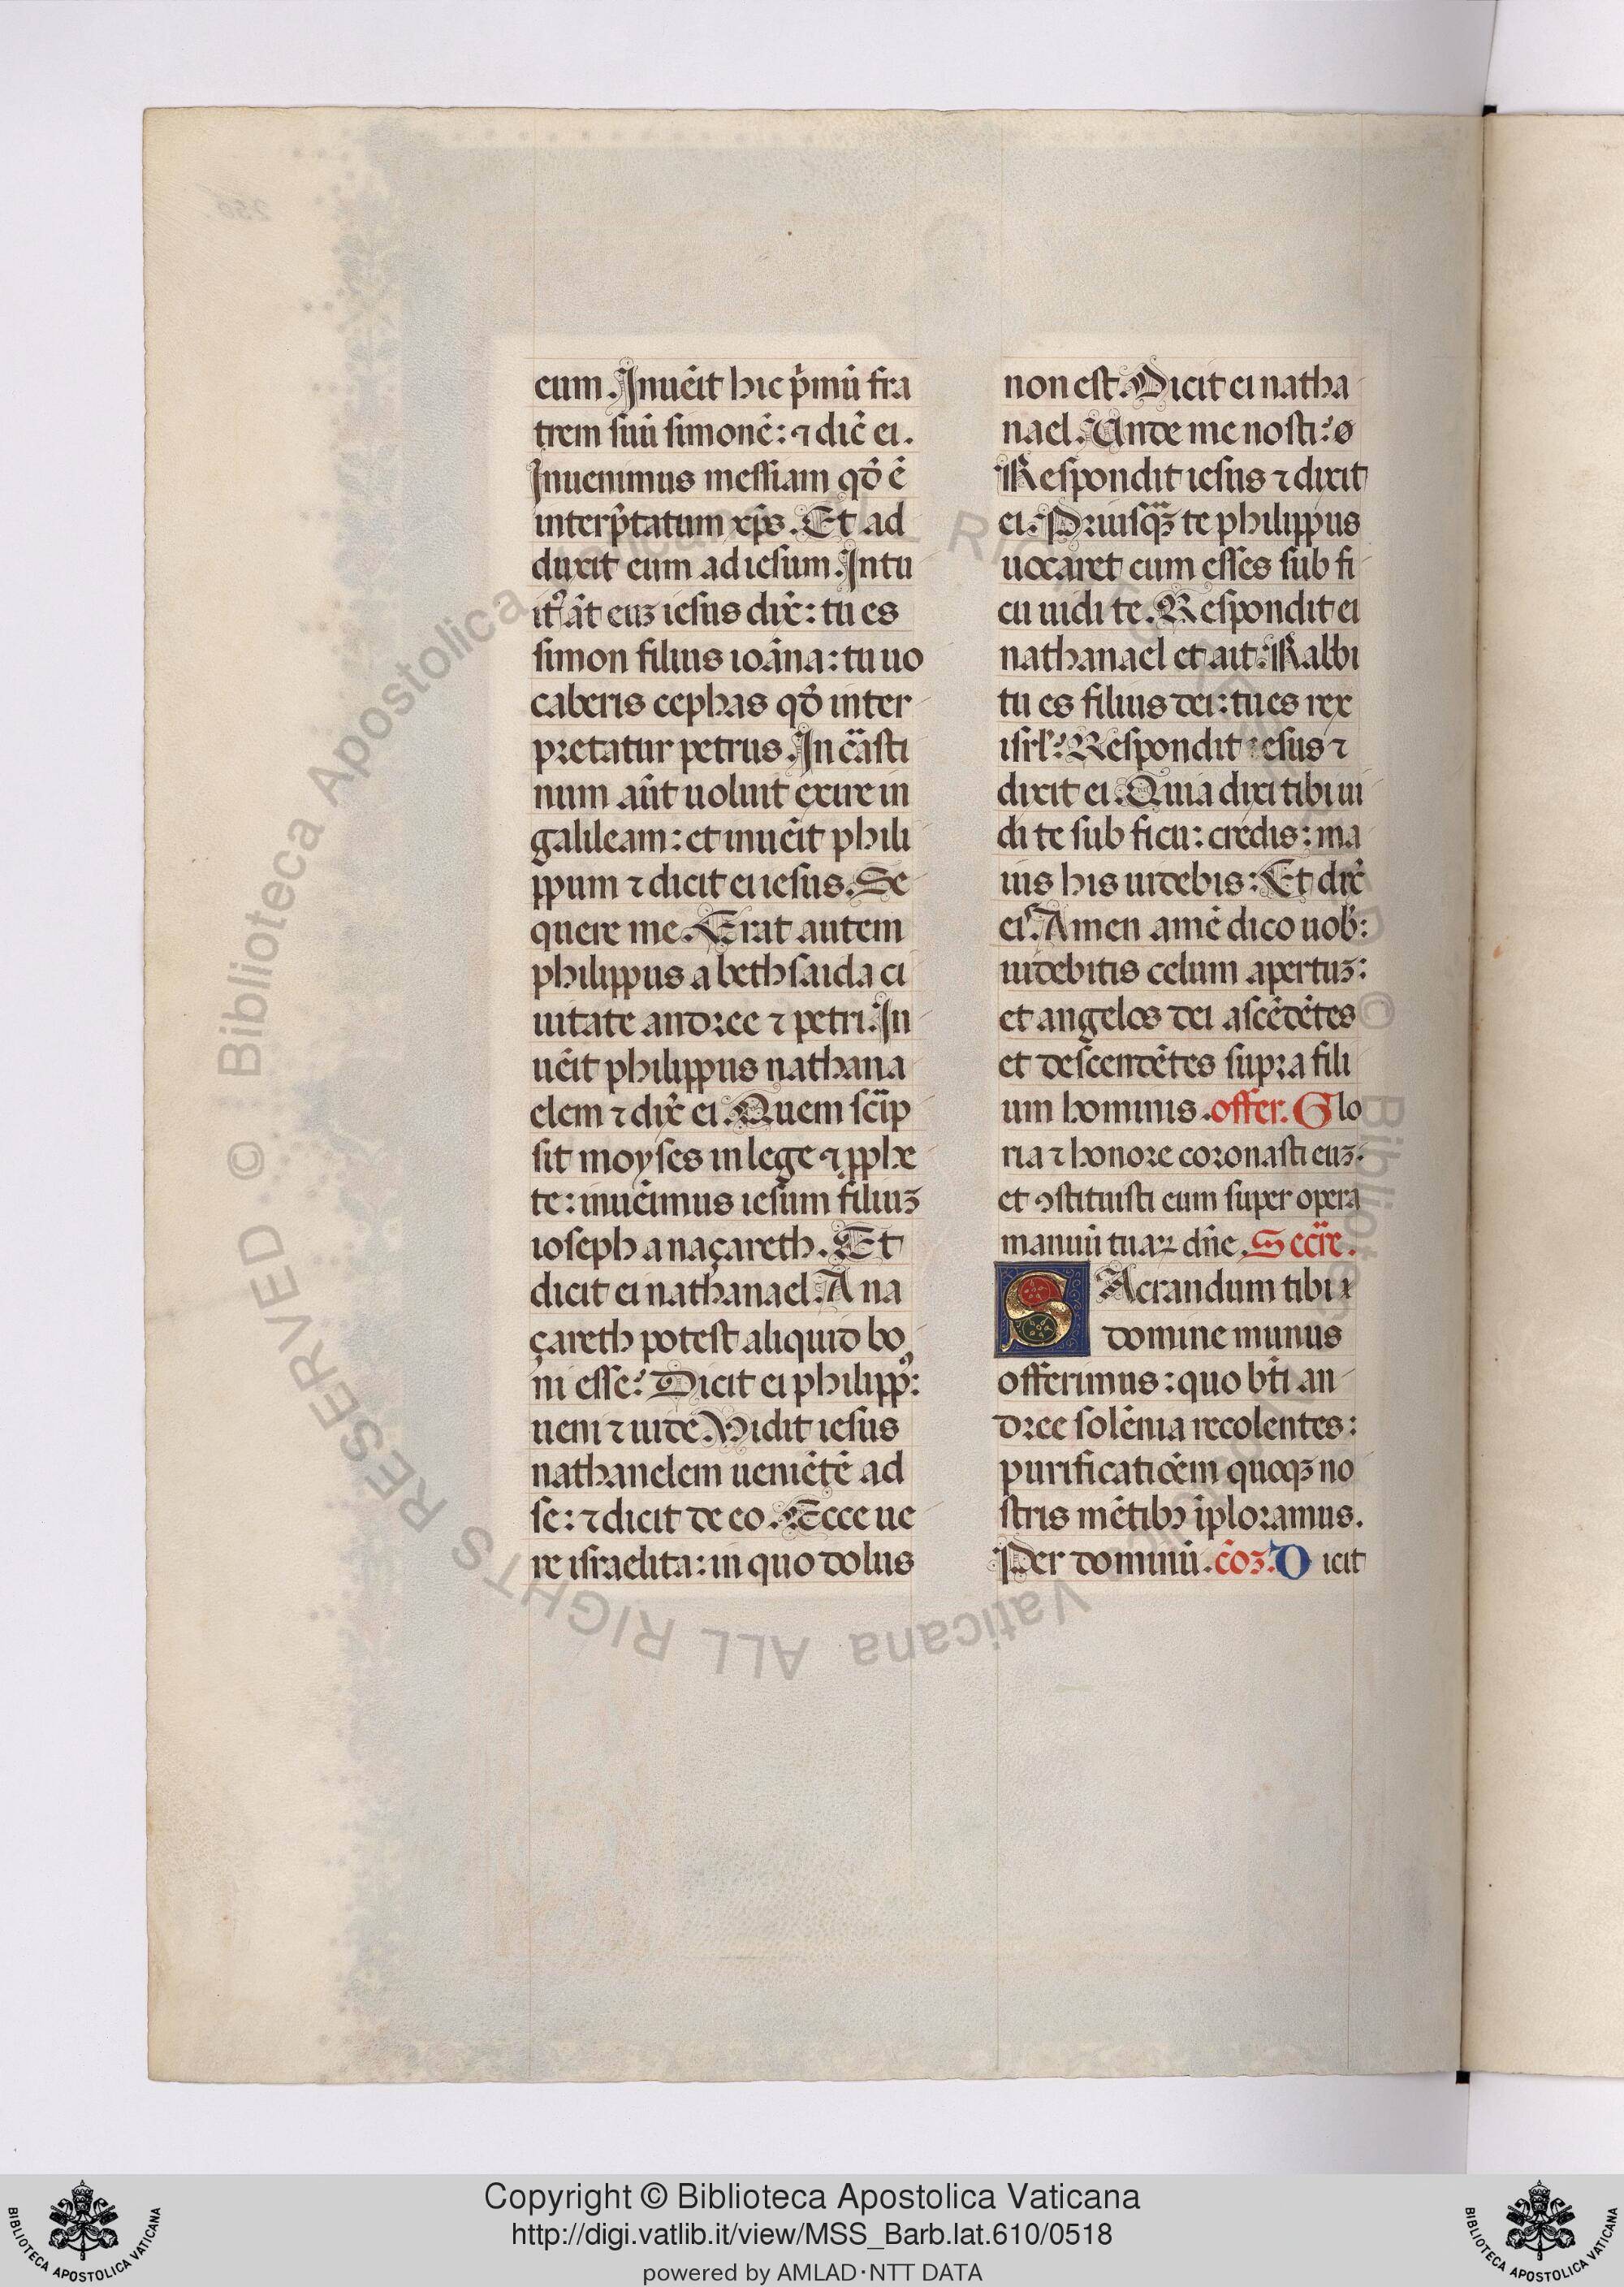 eum. Inuēit hic p̄mū fra
trem suū simonē: ⁊ dic̄ ei.
Inuenimus messiam qd̄ ē
interp̄tatum xp̄s. Et ad
duxit eum ad iesum. Intu
itꝰ āt euꝫ iesus dix̄: tu es
simon filius ioāna: tu uo
caberis cephas qd̄ inter
pretatur petrus. In c̄asti
num aūt uoluit exire in
galileam: et inuēit phili
ppum ⁊ dicit ei iesus. Se
quere me. Erat autem
philippus a bethsaida ci
uitate andree ⁊ petri. In
uēit philippus nathana
elem ⁊ dix̄ ei. Quem sc̄ip
sit moyses in lege ⁊ ꝓphe
te: inuēimus iesum filiuꝫ
ioseph a naçareth. Et
dicit ei nathanael. A na
çareth potest aliquid bo
ni esse? Dicit ei philippꝰ:
ueni ⁊ uide. Vidit iesus
nathanelem ueniētē ad
se: ⁊ dicit de eo. Ecce ue
re israelita: in quo dolus
non est. Dicit ei natha
nael. Unde me nosti? ø
Respondit iesus ⁊ dixit
ei. Priusꝙꝫ te philippus
uocaret cum esses sub fi
cu uidi te. Respondit ei
nathanael et ait. Rabbi
tu es filius dei: tu es rex
isrl̄. Respondit iesus ⁊
dixit ei. Quia dixi tibi ui
di te sub ficu: credis: ma
ius his uidebis: Et dix̄
ei. Amen amē dico uob̄:
uidebitis celum apertuꝫ:
et angelos dei ascēdētes
et descendētes supra fili
um hominis. offer. Glo
ria ⁊ honore coronasti euꝫ.
et ꝯstituisti eum super opera
manuū tuaꝝ dn̄e. Secr̄e.
SAcrandum tibi
domine munus
offerimus: quo bt̄i an
dree solēnia recolentes:
purificatiōem quoqꝫ no
stris mētibꝫ īploramus.
Per dominū. c̄oꝫ. D icit
Copyright © Biblioteca Apostolica Vaticana
http://digi.vatlib.it/view/MSS_Barb.lat.610/0518
powered by AMLAD·NTT DATA
BIBLIOTECA APOSTOLICA VATICANA
BIBLIOTECA APOSTOLICA VATICANA
© Biblioteca Apostolica Vaticana ALL RIGHTS RESERVED